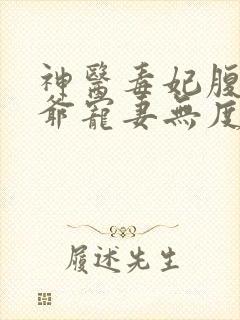 神醫毒妃腹
爺寵妻無度
履述先生